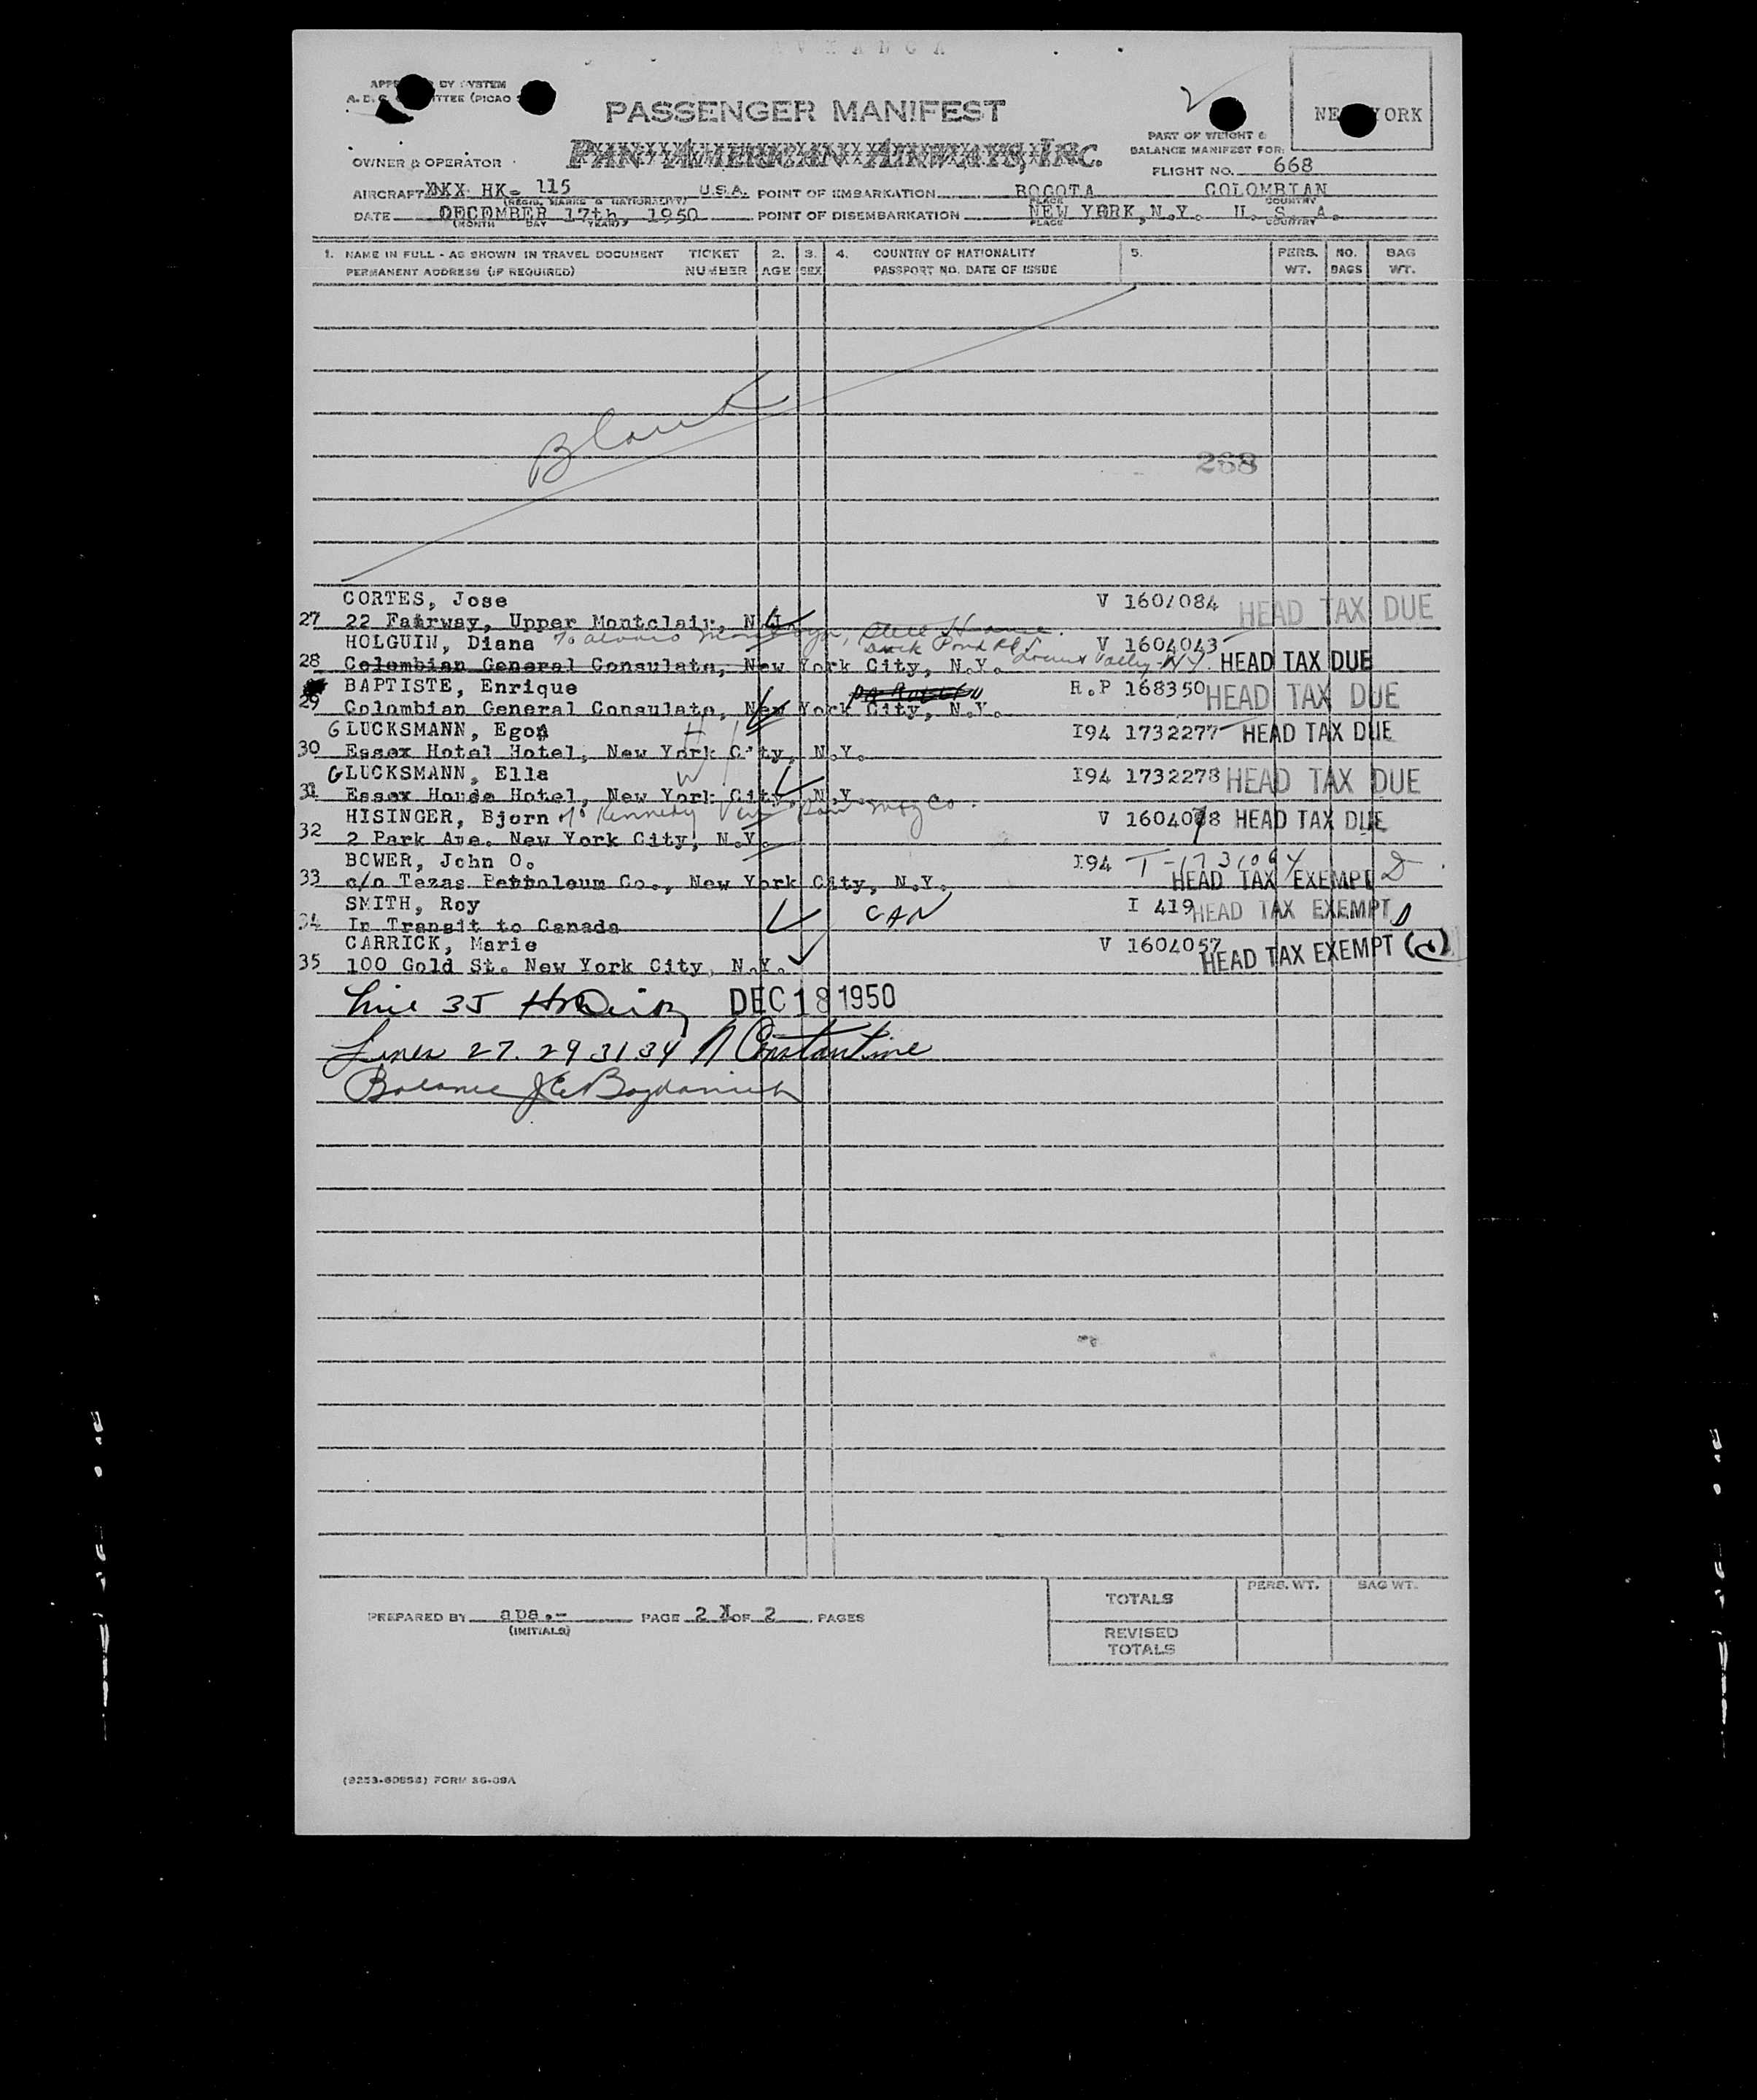 AVIANCA
PASSENGER MANIFEST
NEW YORK
PAN AMERICAN AIRWAYS, INC.
PART OF WEIGHT &
BALANCE MANIFEST FOR:
OWNER & OPERATOR
FLIGHT NO. 668
AIRCRAFT HK- 115 U.S.A. POINT OF EMBARKATION BOGOTA COLOMBIAN
(REGIS. MARKS & NATIONALITY) PLACE COUNTRY
DATE DECEMBER 17th, 1950 POINT OF DISEMBARKATION NEW YORK, N.Y. U. S. A.
(MONTH DAY YEAR) PLACE COUNTRY
1. NAME IN FULL - AS SHOWN IN TRAVEL DOCUMENT TICKET 2. 3. 4. COUNTRY OF NATIONALITY 5. PERS. NO. BAG
PERMANENT ADDRESS (IF REQUIRED) NUMBER AGE SEX PASSPORT NO. DATE OF ISSUE WT. BAGS WT.
Blank
268
CORTES, Jose V 1601084 HEAD TAX DUE
27 22 Fairway, Upper Montclair, N.J.
HOLGUIN, Diana V 1604043
Duck Pond Rd
28 Colombian General Consulate, New York City, N.Y. Locust Valley N.Y. HEAD TAX DUE
BAPTISTE, Enrique R.P 168350 HEAD TAX DUE
29 Colombian General Consulate, New York City, N.Y.
GLUCKSMANN, Egon H I94 1732277 HEAD TAX DUE
30 Essex Hotel Hotel, New York City, N.Y.
GLUCKSMANN, Ella W I94 1732278 HEAD TAX DUE
31 Essex House Hotel, New York City, N.Y.
HISINGER, Bjorn c/o Kennedy Van Saun Mfg Co. V 1604078 HEAD TAX DUE
32 2 Park Ave. New York City, N.Y.
BOWER, John O. I94 T-1731064
33 c/o Tezas Pettoleum Co., New York City, N.Y. HEAD TAX EXEMPT D
SMITH, Roy CAN I 419 HEAD TAX EXEMPT D
34 In Transit to Canada
CARRICK, Marie V 1604057 HEAD TAX EXEMPT (c)
35 100 Gold St. New York City, N.Y.
Line 35 DEC 18 1950
Lines 27. 29 31 34 N Constantine
Balance J E Bogdanich
TOTALS PERS. WT. BAG WT.
PREPARED BY apa.- PAGE 2 OF 2 PAGES
(INITIALS)
REVISED
TOTALS
FORM 36-09A